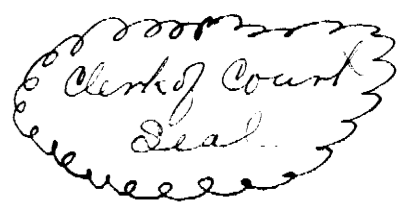 Clerk of Court
Seal.